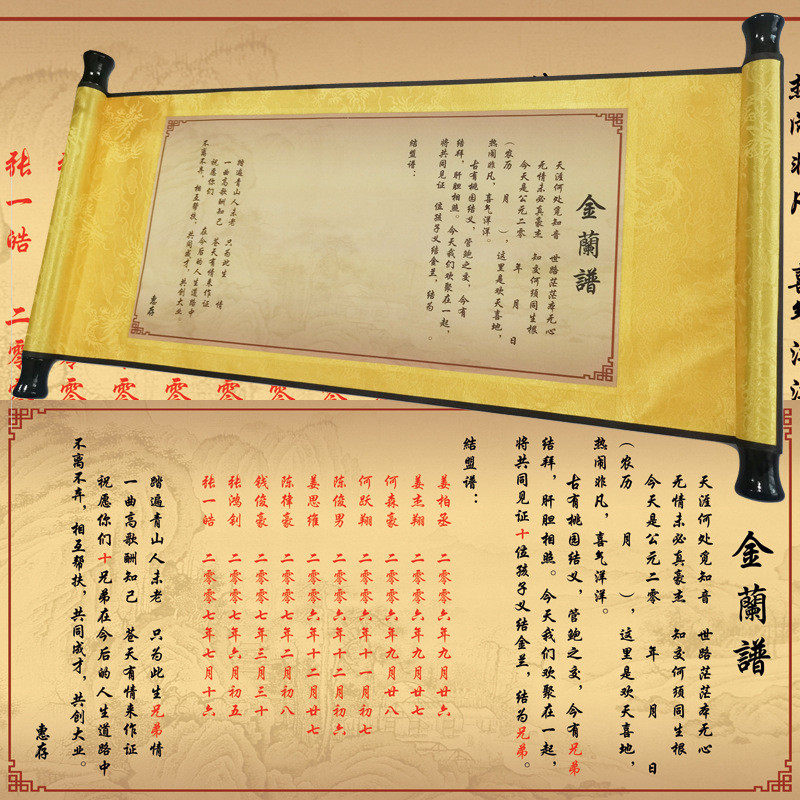 金蘭譜
天涯何处觅知音 世路茫茫本无心
无情未必真豪杰 知交何须同生根
今天是公元二零 年 月 日
(农历 月 )，这里是欢天喜地，
热闹非凡，喜气洋洋。
古有桃园结义，管鲍之交，今有
结拜，肝胆相照。今天我们欢聚在一起，
将共同见证 位孩子义结金兰，结为 。
結盟谱：
踏遍青山人未老 只为此生 情
一曲高歌酬知己 苍天有情来作证
祝愿你们 在今后的人生道路中
不离不弃，相互帮扶，共同成才，共创大业。
惠存
热闹非凡 喜气洋
张一皓 二零零
金蘭譜
天涯何处觅知音 世路茫茫本无心
无情未必真豪杰 知交何须同生根
今天是公元二零 年 月 日
(农历 月 )，这里是欢天喜地，
热闹非凡，喜气洋洋。
古有桃园结义，管鲍之交，今有兄弟
结拜，肝胆相照。今天我们欢聚在一起，
将共同见证十位孩子义结金兰，结为兄弟。
結盟谱：
姜柏丞 二零零六年九月廿六
姜杰翔 二零零六年九月廿七
何森豪 二零零六年九月廿八
何跃翔 二零零六年十一月初七
陈俊男 二零零六年十二月初六
姜思维 二零零六年十二月廿七
陈律豪 二零零七年二月初八
钱俊豪 二零零七年三月三十
张鸿创 二零零七年六月初五
张一皓 二零零七年七月十六
踏遍青山人未老 只为此生兄弟情
一曲高歌酬知己 苍天有情来作证
祝愿你们十兄弟在今后的人生道路中
不离不弃，相互帮扶，共同成才，共创大业。
惠存